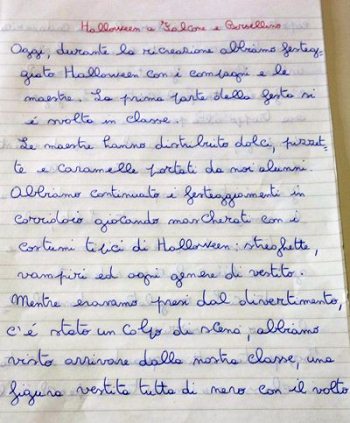 Halloween a Falcone e Borsellino
Oggi, durante la ricreazione abbiamo festeg-
giato Halloween con i compagni e le
maestre. La prima parte della festa si
é svolta in classe.
Le maestre hanno distribuito dolci, pizzet-
te e caramelle portati da noi alunni.
Abbiamo continuato i festeggiamenti in
corridoio giocando mascherati con i
costumi tipici di Halloween: streghette,
vampiri ed ogni genere di vestito.
Mentre eravamo presi dal divertimento,
c'é stato un colpo di scena, abbiamo
visto arrivare dalla nostra classe, una
figura vestita tutta di nero con il volto